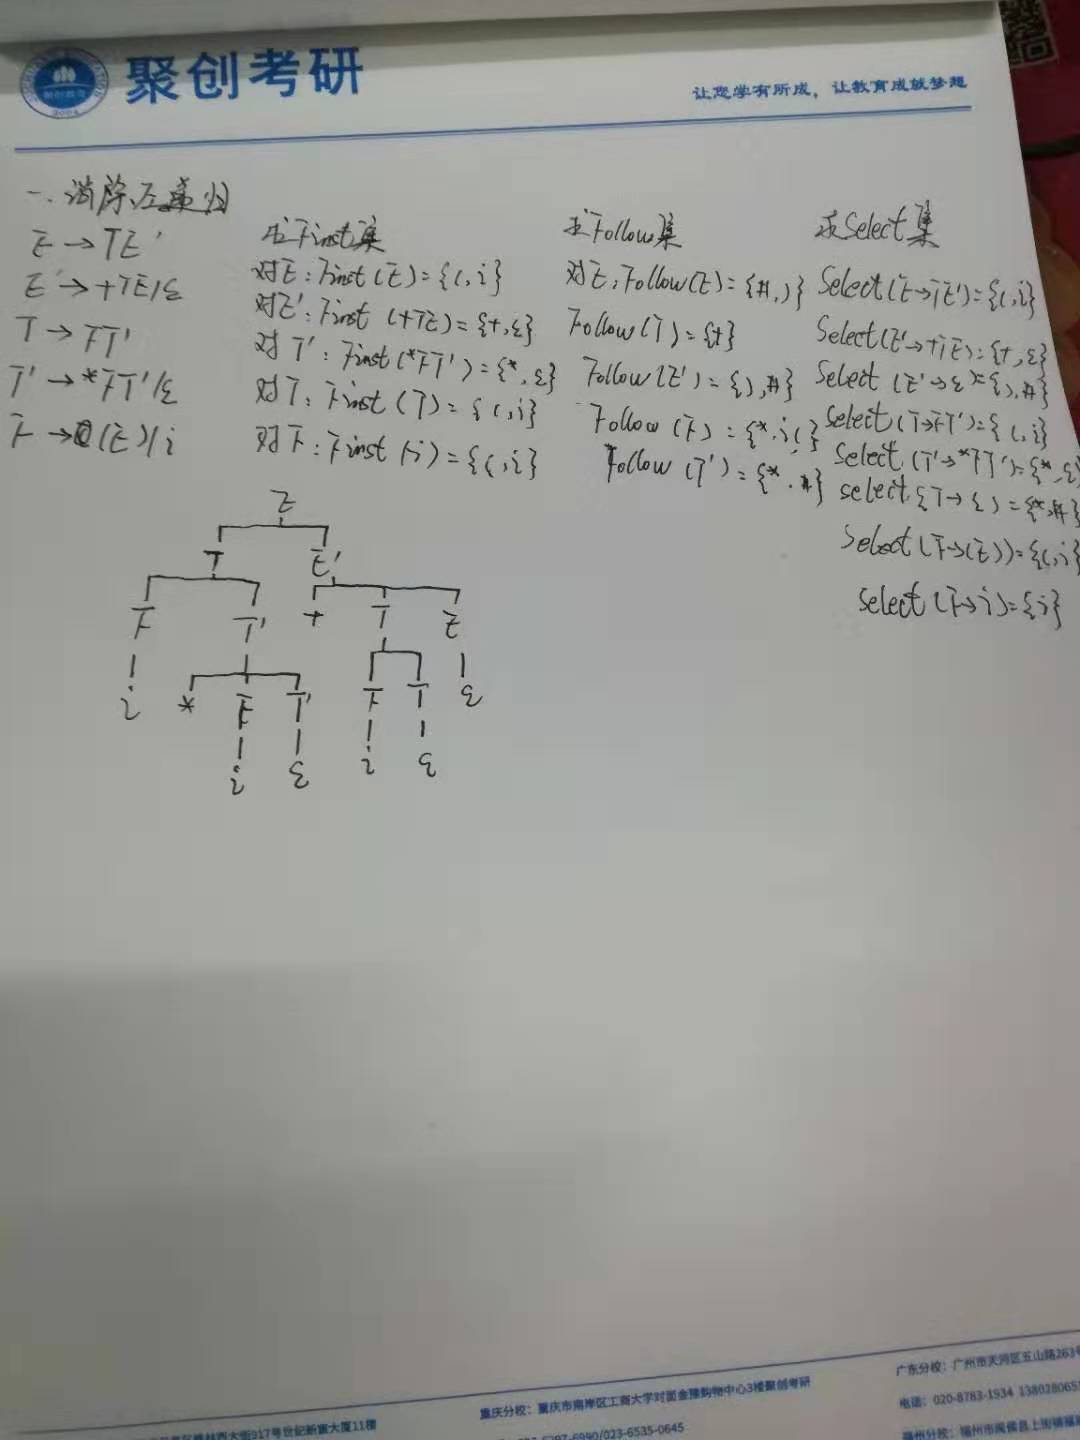 聚创考研
让您学有所成，让教育成就梦想
一.消除左递归
E→TE'
E'→+TE/ε
T→FT'
T'→*FT'/ε
F→(E)/i
求First集
对E:First(E)={(,i}
对E':First(+TE)={+,ε}
对T':First(*FT')={*,ε}
对T:First(T)={(,i}
对F:First(i)={(,i}
求Follow集
对E,Follow(E)={#,)}
Follow(T)={+}
Follow(E')={),#}
Follow(F)={*,i,(}
Follow(T')={*,#}
求Select集
Select(E→TE')={(,i}
Select(E'→+TE)={+,ε}
Select(E'→ε)={),#}
Select(T→FT')={(,i}
Select(T'→*FT')={*,ε}
select{T→ε)={*,#}
Select(F→(E))={(,i}
Select(F→i)={i}
E
T E'
F T' + T E
i * F T' F T ε
i ε i ε
重庆分校：重庆市南岸区工商大学对面金豫购物中心3楼聚创考研
6297-6990/023-6535-0645
917号世纪新寰大厦11楼
广东分校：广州市天河区五山路263号
电话：020-8783-1934 138028065
福州分校：福州市闽侯县上街镇福